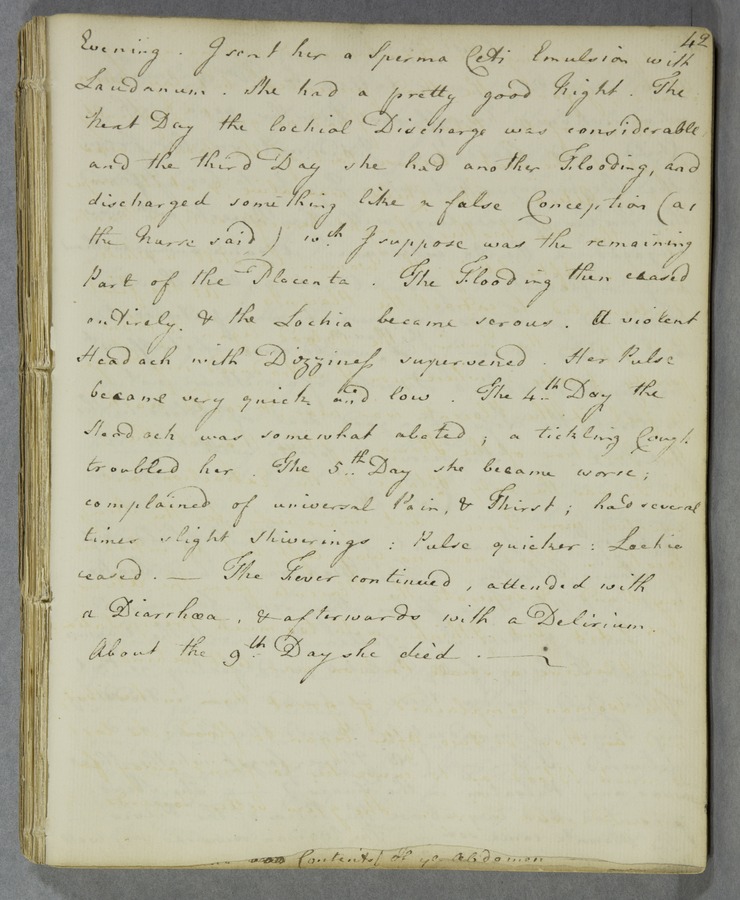 42
Evening. I sent her a Sperma Ceti Emulsion with
Laudanum. She had a pretty good Night. The
next Day the lochial Discharge was considerable,
and the third Day she had another Flooding, and
discharged something like a false Conception (as
the Nurse said) wch I suppose was the remaining
Part of the Placenta. The Flooding then ceased
entirely, & the Lochia became serous. A violent
Headach with Dizziness supervened. Her Pulse
became very quick and low. The 4th Day the
Headach was somewhat abated; a tickling Cough
troubled her. The 5th Day she became worse;
complained of universal Pain, & Thirst; had several
times slight Shiverings: Pulse quicker: Lochia
ceased. — The Fever continued, attended with
a Diarrhœa, & afterwards with a Delirium.
About the 9th Day she died. —
Contents of ye Abdomen